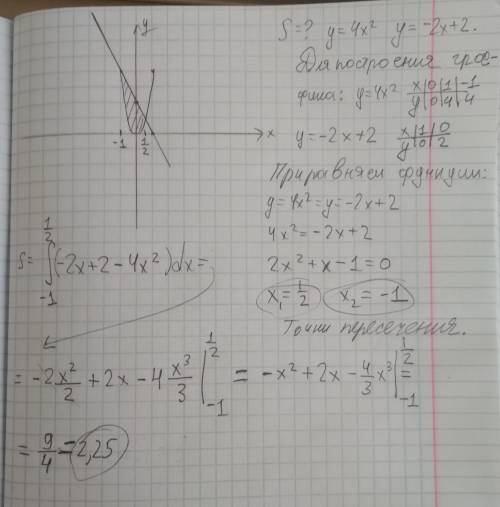 S=? y=4x² y=-2x+2.
Для построения гра-
фика: y=4x² x|0|1|-1
y|0|4|4
y=-2x+2 x|1|0
y|0|2
Приравняем функции:
y=4x²=y=-2x+2
4x²=-2x+2
2x²+x-1=0
x₁=1/2 x₂=-1
Точки пересечения.
y
x
-1 1/2
S= ∫₋₁^(1/2) (-2x+2-4x²)dx=
= -2x²/2 + 2x - 4x³/3 |₋₁^(1/2) = -x²+2x-4/3x³|₋₁^(1/2) =
= 9/4 = 2,25